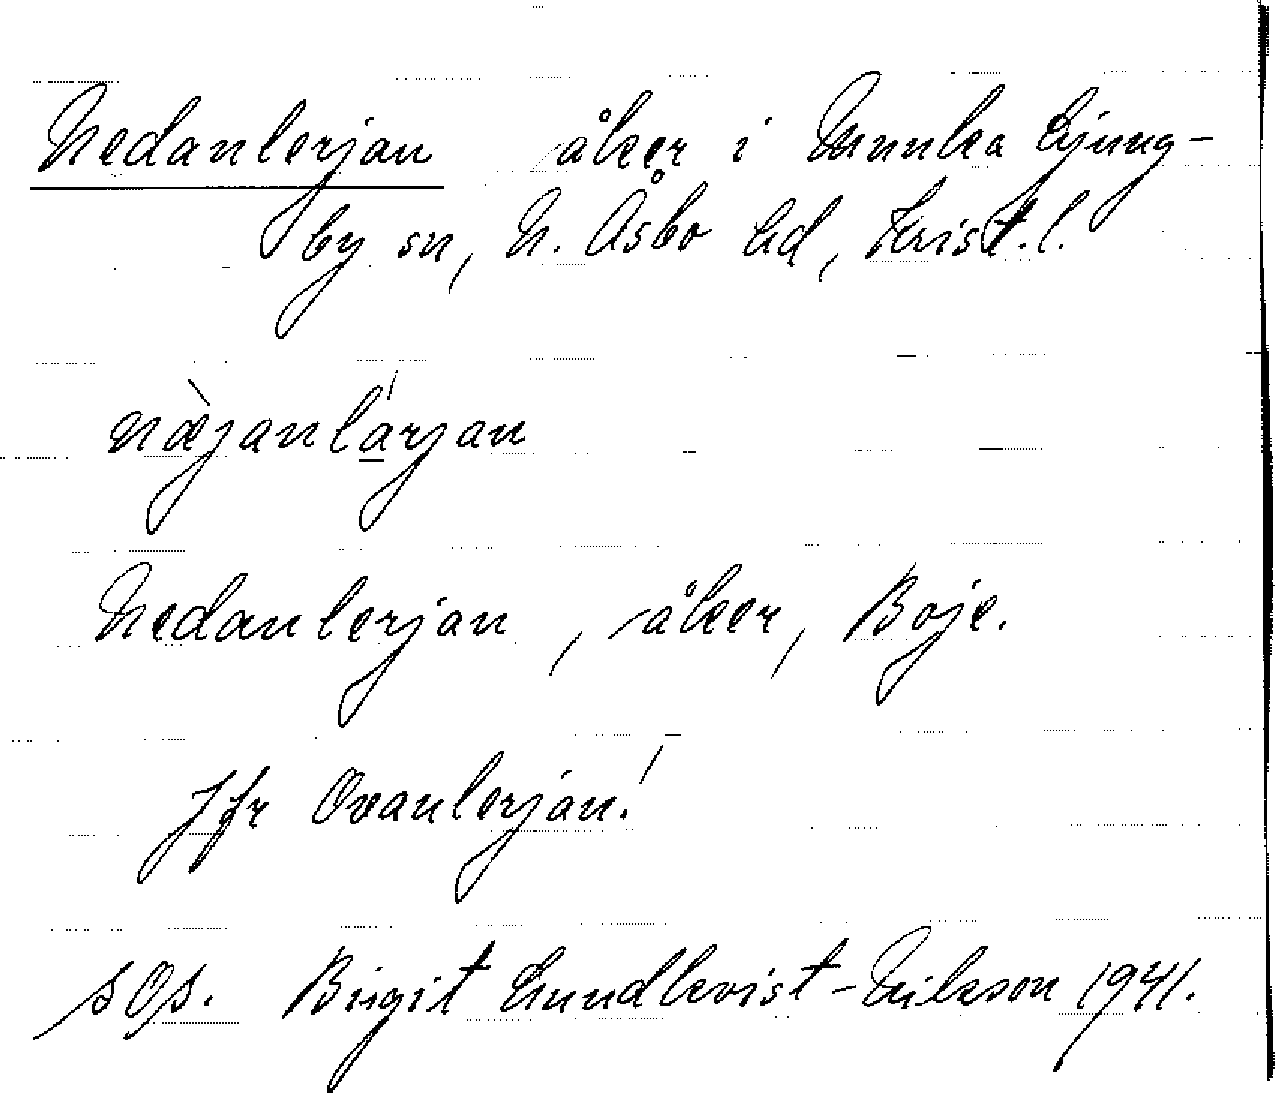 Nedanlerjan åker i Munka Ljung-
by sn, N. Åsbo hd, Krist.l.
næ̀janlá̱rjan
Nedanlerjan, åker, Boje.
Jfr Ovanlerjan!
sOp. Birgit Lundkvist-Nilsson 1941.